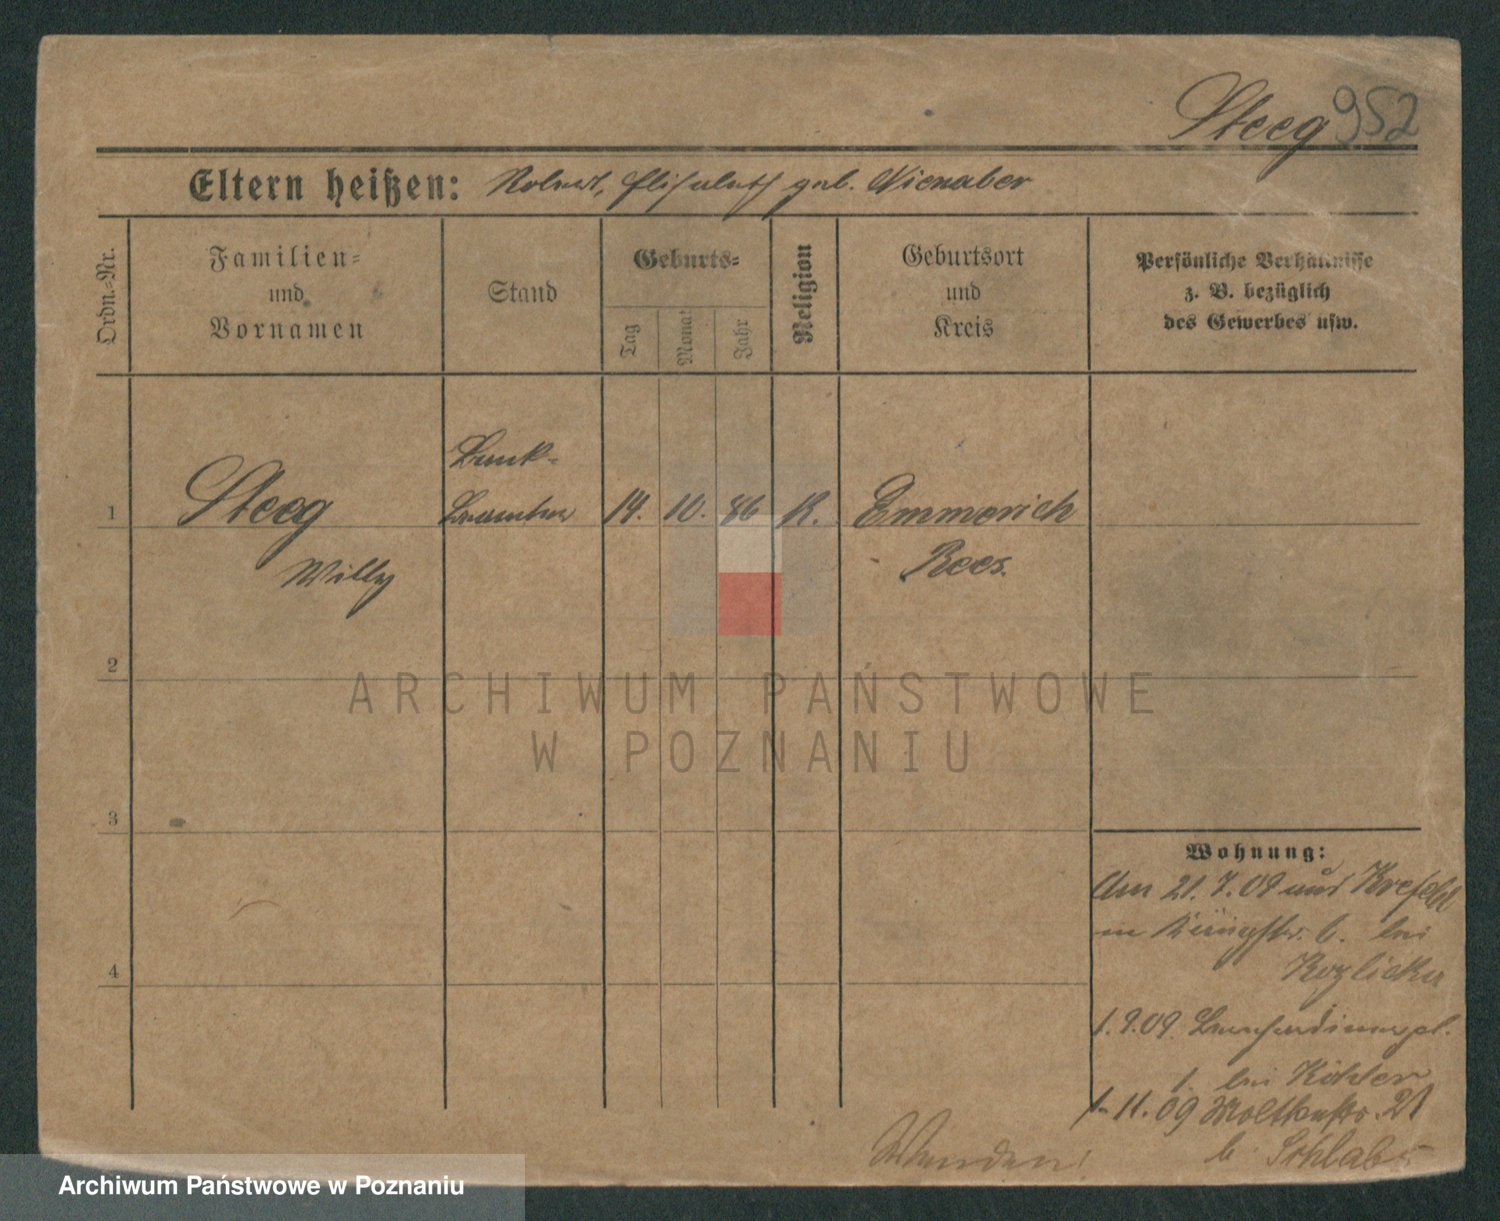 Steeg 952
Eltern heißen: Robert, Elisabeth geb. Nienaber
Ordn.-Nr.
Familien-
und
Vornamen
Stand
Geburts-
Tag
Monat
Jahr
Religion
Geburtsort
und
Kreis
Persönliche Verhältnisse
z. B. bezüglich
des Gewerbes usw.
Bank-
1 Steeg beamter 14. 10. 86 K. Emmerich
Willy Rees.
2
ARCHIWUM PAŃSTWOWE
W POZNANIU
3
Wohnung:
Am 21.7.09 aus Krefeld
in Ringstr. 6. bei
4
1.9.09
1. bei Köhler
1.11.09 Moltkestr. 21
b.
Archiwum Państwowe w Poznaniu